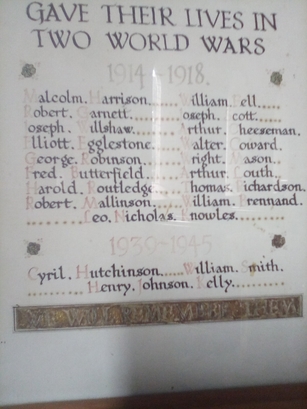 GAVE THEIR LIVES IN
TWO WORLD WARS
1914-1918.
Malcolm. Harrison...... William.
Robert. Garnett...... Joseph. Scott.....
Joseph. Willshaw...... Arthur. Cheeseman.
Elliott. Egglestone...... Walter. Coward.
George. Robinson...... Wright. Mason.
Fred. Butterfield...... Arthur.
Harold. Routledge Thomas. Richardson.
Robert. Mallinson...... William. Brennand.
........Leo. Nicholas. Knowles.......
1939-1945
Cyril. Hutchinson.....William. Smith.
..........Henry. Johnson. Kelly..........
WE WILL REMEMBER THEM